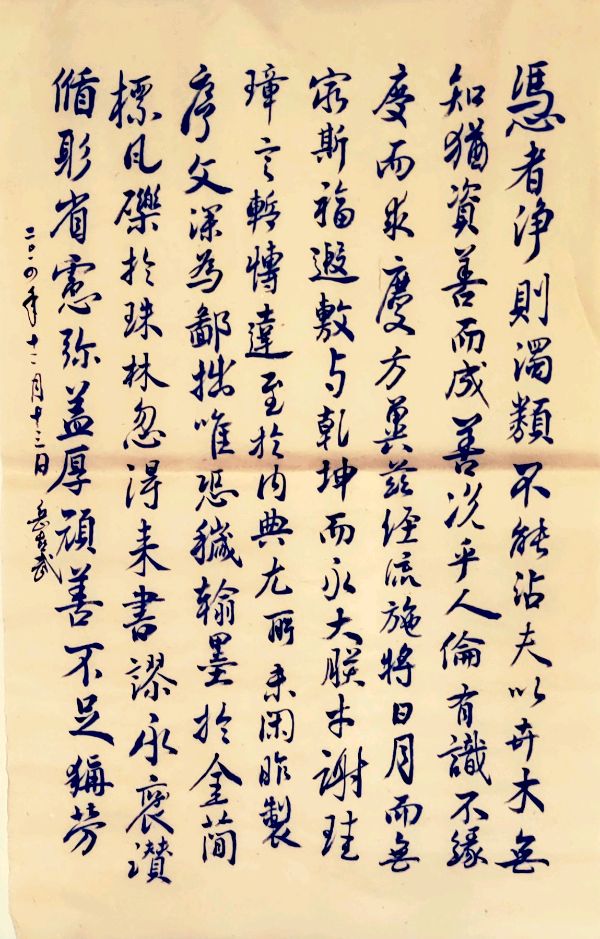 憑者浄則濁類不能沾夫以卉木無
知猶資善而成善況乎人倫有識不緣
慶而求慶方冀茲經流施將日月而無
窮斯福遐敷与乾坤而永大朕才謝珪
璋言慚博達至於内典尤所未閑昨製
序文深為鄙拙唯恐穢翰墨於金簡
標瓦礫於珠林忽得来書謬承褒讃
循躬省慮弥盖厚顔善不足稱勞
二〇一四年十二月十三日